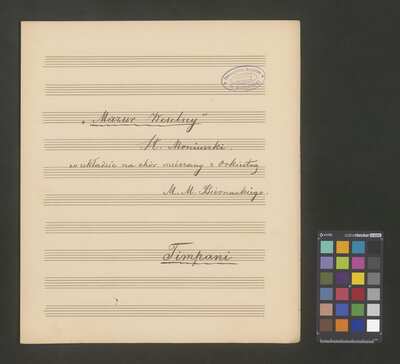 „Mazur Weselny"
St. Moniuszki.
w układzie na chór mieszany z orkiestrą
M. M. Biernackiego.
Timpani